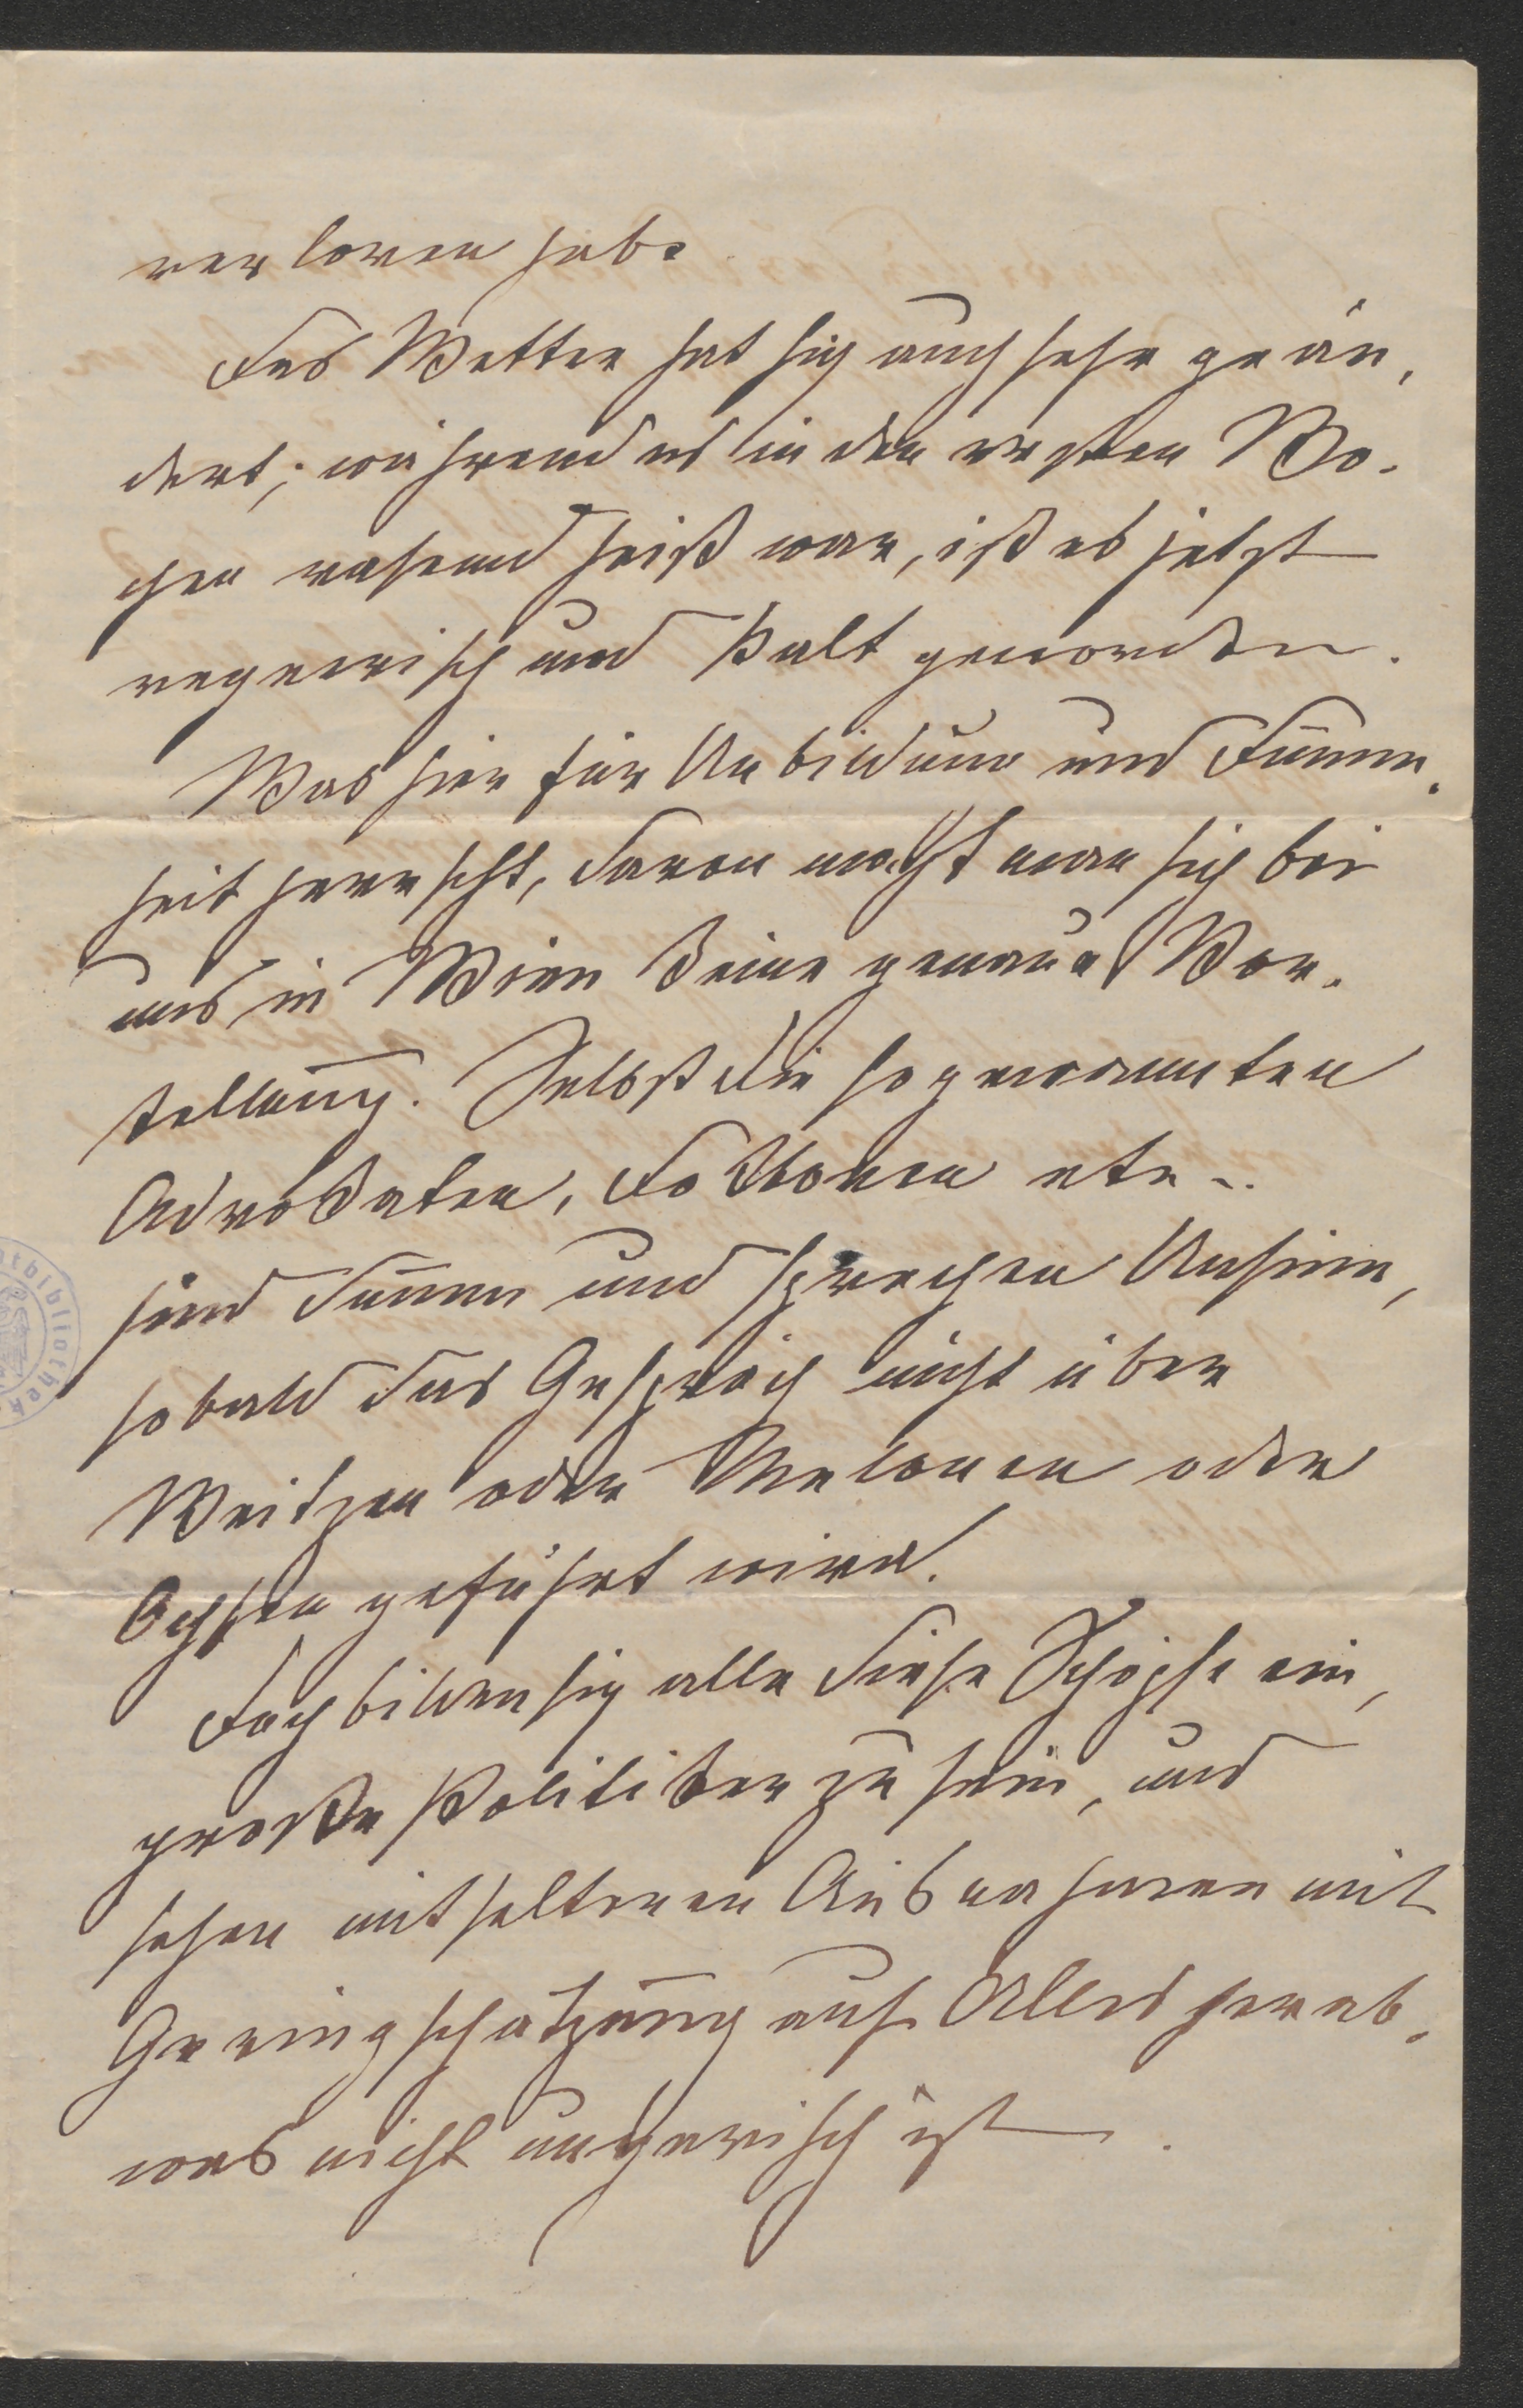 verloren habe
Das Wetter hat sich auch sehr geän,
dert; während es in den ersten Wo,
chen rasend heiß war, ist es jetzt
regnerisch und kalt geworden.
Was hier für Unbildung und Dumm,
heit herrscht, davon macht man sich bei
uns in Wien keine genaue Vor,
stellung. Selbst die sogenannten
Advokaten, Doktoren etc..
sind dumm und sprechen Unsinn,
sobald das Gespräch nicht über
Weitzen oder Melonen oder
Ochsen geführt wird.
Doch bilden sich alle diese Schöpse ein,
große Politiker zu sein, und
sehen mit seltenen Ausnahmen mit
Geringschätzung auf Alles herab,
was nicht ungarisch ist.